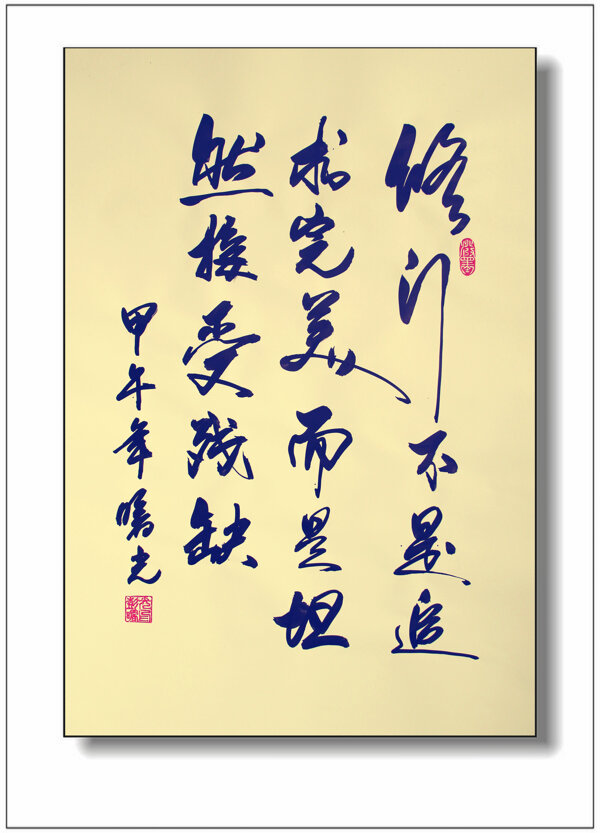 修行不是追
求完美而是坦
然接受残缺
甲午年曙光